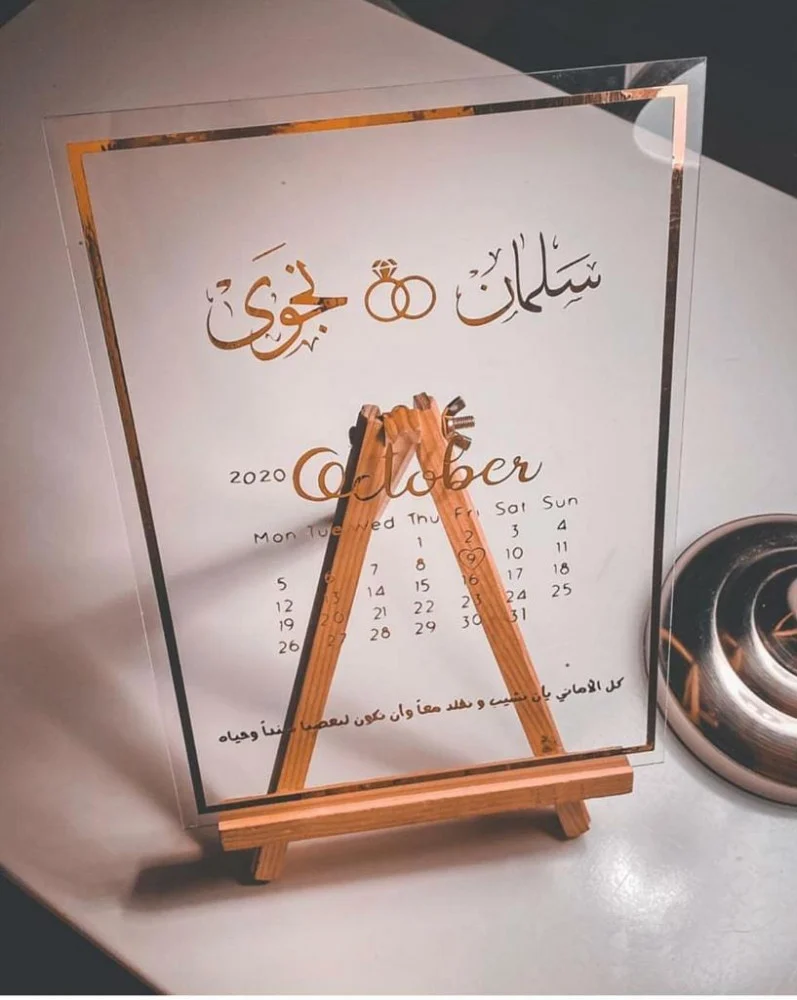 سلمان نجوى
2020 October
Mon Tue Wed Thu Fri Sat Sun
1 2 3 4
5 6 7 8 9 10 11
12 13 14 15 16 17 18
19 20 21 22 23 24 25
26 27 28 29 30 31
كل الأماني بأن نشيب و نخلد معاً وأن نكون لبعضنا سنداً وحياه